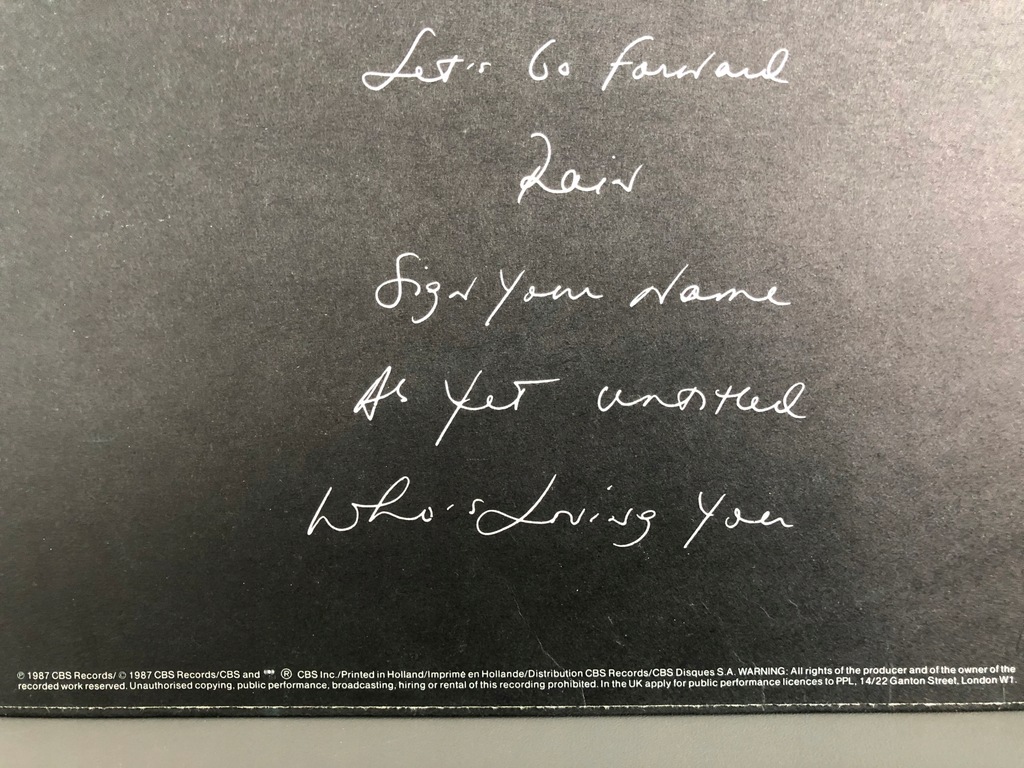 Let's Go Forward
Rain
Sign Your Name
As Yet Untitled
Who's Loving You
℗ 1987 CBS Records/ © 1987 CBS Records/CBS and ® CBS Inc./Printed in Holland/Imprimé en Hollande/Distribution CBS Records/CBS Disques S.A. WARNING: All rights of the producer and of the owner of the
recorded work reserved. Unauthorised copying, public performance, broadcasting, hiring or rental of this recording prohibited. In the UK apply for public performance licences to PPL, 14/22 Ganton Street, London W1.